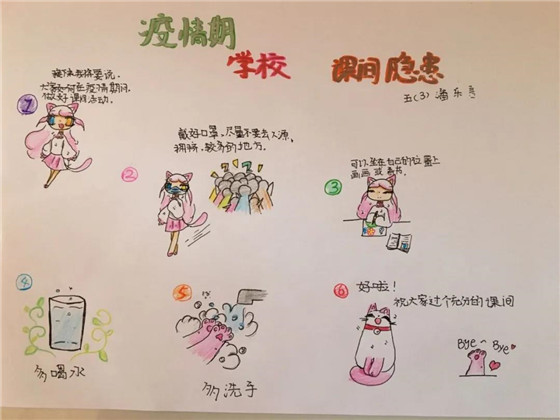 疫情期
学校 课间隐患
五(3) 潘乐
1
我要说,
大家如何在疫情期间
做好课间活动。
2
戴好口罩,尽量不要去人源,
拥挤,较多的地方。
3
可以坐在自己的位置上
画画或看书。
4
多喝水
5
多洗手
6
好啦!
祝大家过个充分的课间
Bye~Bye